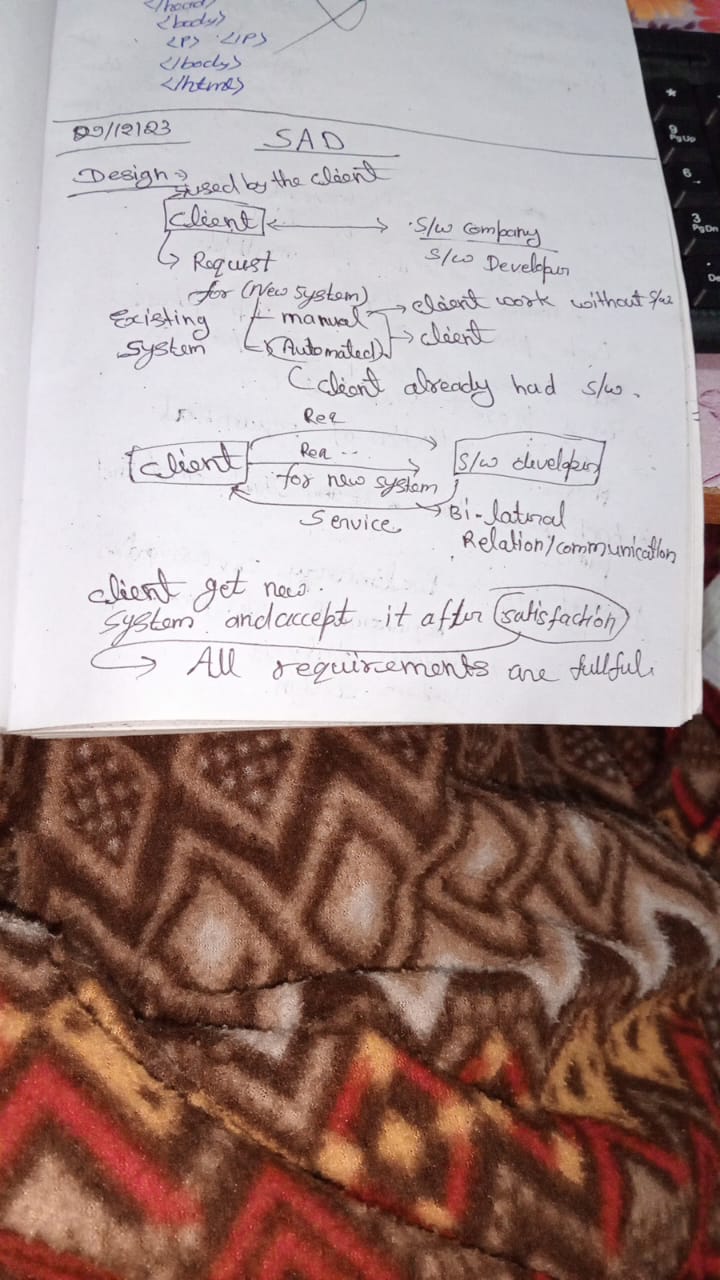 </head>
<body>
<P> </P>
</body>
</html>
29/12/23
SAD
Design →
used by the client
Client
S/w Company
S/w Developer
Request
for (New system)
Existing
system
manual
client work without s/w
(Automated)
client
client already had s/w.
Req
Req ..
Client
for new system
S/w developer
Service
Bi-latural
Relation/communication
client get new
system and accept it after satisfaction
All requirements are fullful.
*
9
PgUp
6
3
PgDn